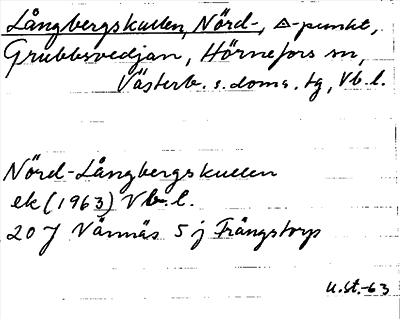 Långbergskullen, Nörd-, △-punkt,
Grubbsvedjan, Hörnefors sn,
Västerb. s. doms. tg, Vb. l.
Nörd-Långbergskullen
ek (1963) Vb. l.
20 J Vännäs 5 j Frängstorp
U.St.-63